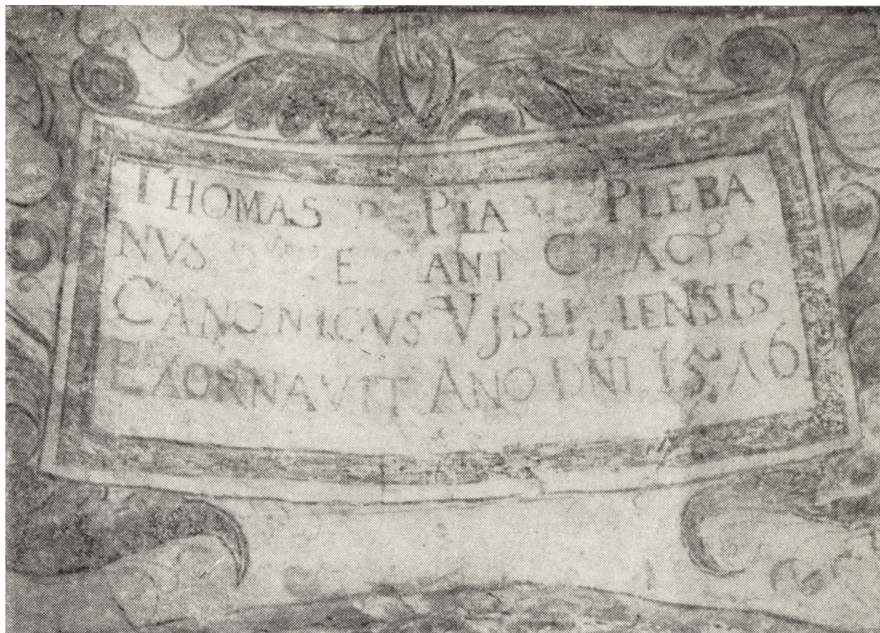 THOMAS PIA PLEBA
NVS E ANT
CANONICVS VJSLI LENSIS
EAORNAVIT ANO DNI 1516